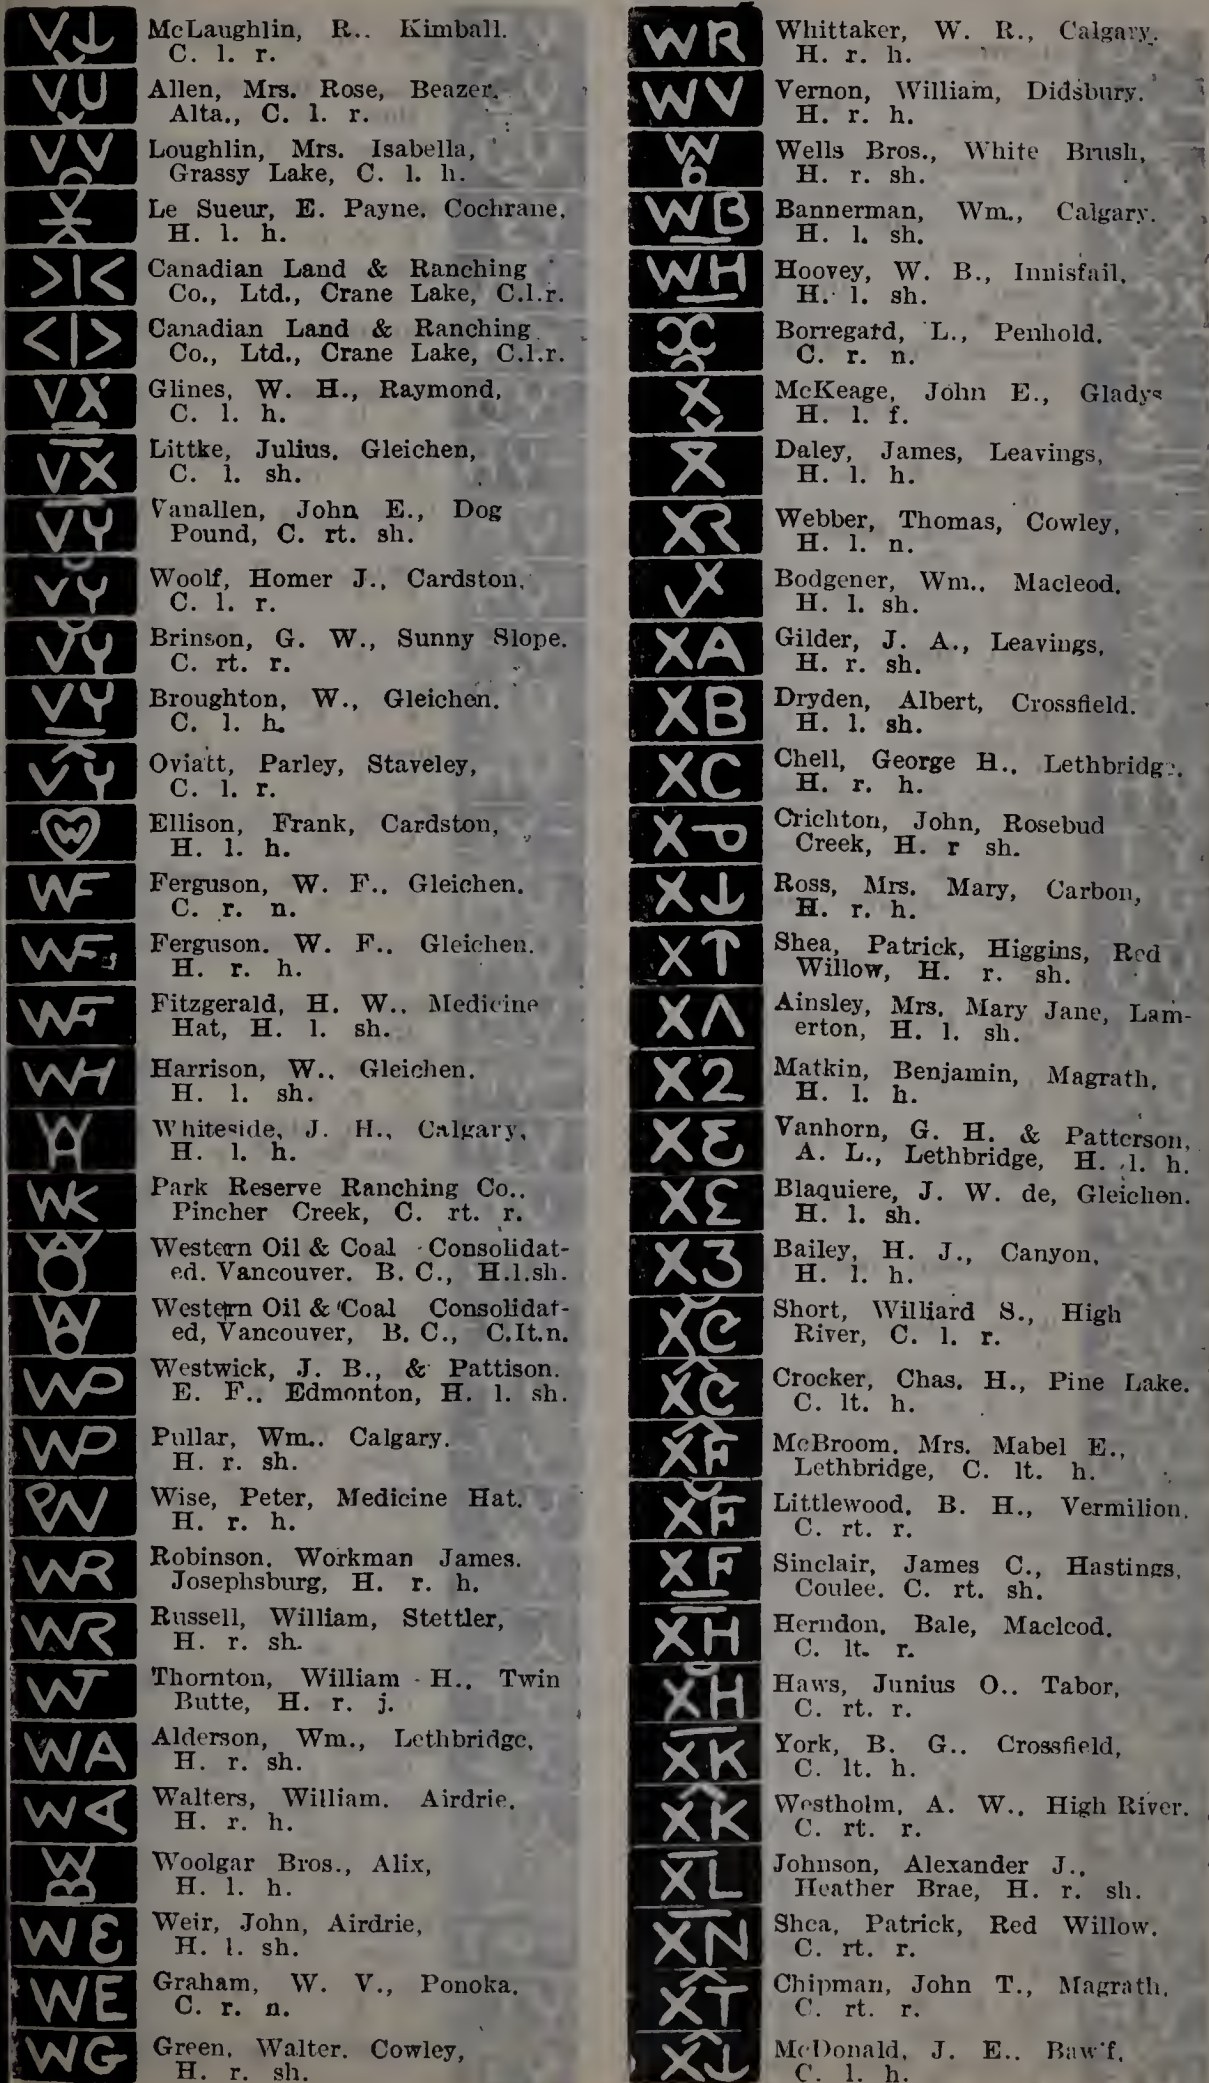 McLaughlin, R.. Kimball.
C. l. r.
Allen, Mrs. Rose, Beazer,
Alta., C. l. r.
Loughlin, Mrs. Isabella,
Grassy Lake, C. l. h.
Le Sueur, E. Payne. Cochrane,
H. l. h.
Canadian Land & Ranching
Co., Ltd., Crane Lake, C.l.r.
Canadian Land & Ranching
Co., Ltd., Crane Lake, C.l.r.
VX Glines, W. H., Raymond,
C. l. h.
VX Littke, Julius. Gleichen,
C. l. sh.
VY Vanallen, John E., Dog
Pound, C. rt. sh.
VY Woolf, Homer J., Cardston,
C. l. r.
VY Brinson, G. W., Sunny Slope.
C. rt. r.
VY Broughton, W., Gleichen.
C. l. h.
VY Oviatt, Parley, Staveley,
C. l. r.
W Ellison, Frank, Cardston,
H. l. h.
WF Ferguson, W. F.. Gleichen.
C. r. n.
WF Ferguson. W. F.. Gleichen.
H. r. h.
WF Fitzgerald, H. W.. Medicine
Hat, H. l. sh.
WH Harrison, W.. Gleichen.
H. l. sh.
Whiteside, J. H., Calgary,
H. l. h.
WK Park Reserve Ranching Co..
Pincher Creek, C. rt. r.
Western Oil & Coal Consolidat-
ed. Vancouver. B. C., H.l.sh.
Western Oil & Coal Consolidat-
ed, Vancouver, B. C., C.lt.n.
WP Westwick, J. B., & Pattison.
E. F.. Edmonton, H. l. sh.
WP Pullar, Wm.. Calgary.
H. r. sh.
Wise, Peter, Medicine Hat.
H. r. h.
WR Robinson. Workman James.
Josephsburg, H. r. h.
WR Russell, William, Stettler,
H. r. sh.
Thornton, William H.. Twin
Butte, H. r. j.
WA Alderson, Wm., Lethbridge,
H. r. sh.
Walters, William. Airdrie.
H. r. h.
Woolgar Bros., Alix,
H. l. h.
Weir, John, Airdrie,
H. l. sh.
WE Graham, W. V., Ponoka.
C. r. n.
WG Green, Walter. Cowley,
H. r. sh.
WR Whittaker, W. R., Calgary.
H. r. h.
WV Vernon, William, Didsbury.
H. r. h.
W6 Wells Bros., White Brush,
H. r. sh.
WB Bannerman, Wm., Calgary.
H. l. sh.
WH Hoovey, W. B., Innisfail,
H. l. sh.
Borregard, L., Penhold.
C. r. n.
McKeage, John E., Gladys
H. l. f.
Daley, James, Leavings,
H. l. h.
XR Webber, Thomas, Cowley,
H. l. n.
Bodgener, Wm.. Macleod.
H. l. sh.
XA Gilder, J. A., Leavings,
H. r. sh.
XB Dryden, Albert, Crossfield.
H. l. sh.
XC Chell, George H.. Lethbridge.
H. r. h.
Crichton, John, Rosebud
Creek, H. r sh.
Ross, Mrs. Mary, Carbon,
H. r. h.
Shea, Patrick, Higgins, Red
Willow, H. r. sh.
Ainsley, Mrs. Mary Jane, Lam-
erton, H. l. sh.
X2 Matkin, Benjamin, Magrath.
H. l. h.
Vanhorn, G. H. & Patterson,
A. L., Lethbridge, H. l. h.
Blaquiere, J. W. de, Gleichen.
H. l. sh.
X3 Bailey, H. J., Canyon,
H. l. h.
Short, Williard S., High
River, C. l. r.
Crocker, Chas. H., Pine Lake.
C. lt. h.
XF McBroom. Mrs. Mabel E.,
Lethbridge, C. lt. h.
XF Littlewood, B. H., Vermilion.
C. rt. r.
XF Sinclair, James C., Hastings,
Coulee. C. rt. sh.
XH Herndon, Bale, Macleod.
C. lt. r.
XH Haws, Junius O.. Tabor,
C. rt. r.
XK York, B. G.. Crossfield,
C. lt. h.
XK Westholm, A. W.. High River.
C. rt. r.
XL Johnson, Alexander J..
Heather Brae, H. r. sh.
XN Shea, Patrick, Red Willow.
C. rt. r.
XT Chipman, John T., Magrath,
C. rt. r.
McDonald, J. E.. Bawlf,
C. l. h.